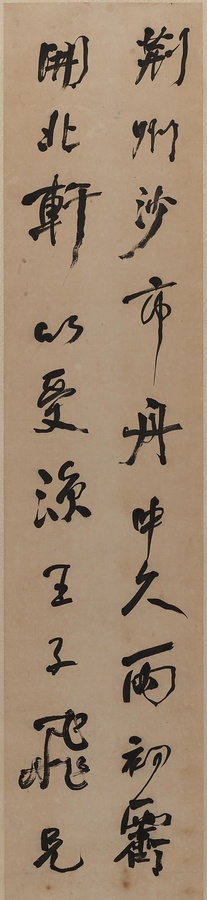 荊州沙市舟中久雨初霽
開北軒以受涼王子飛兄